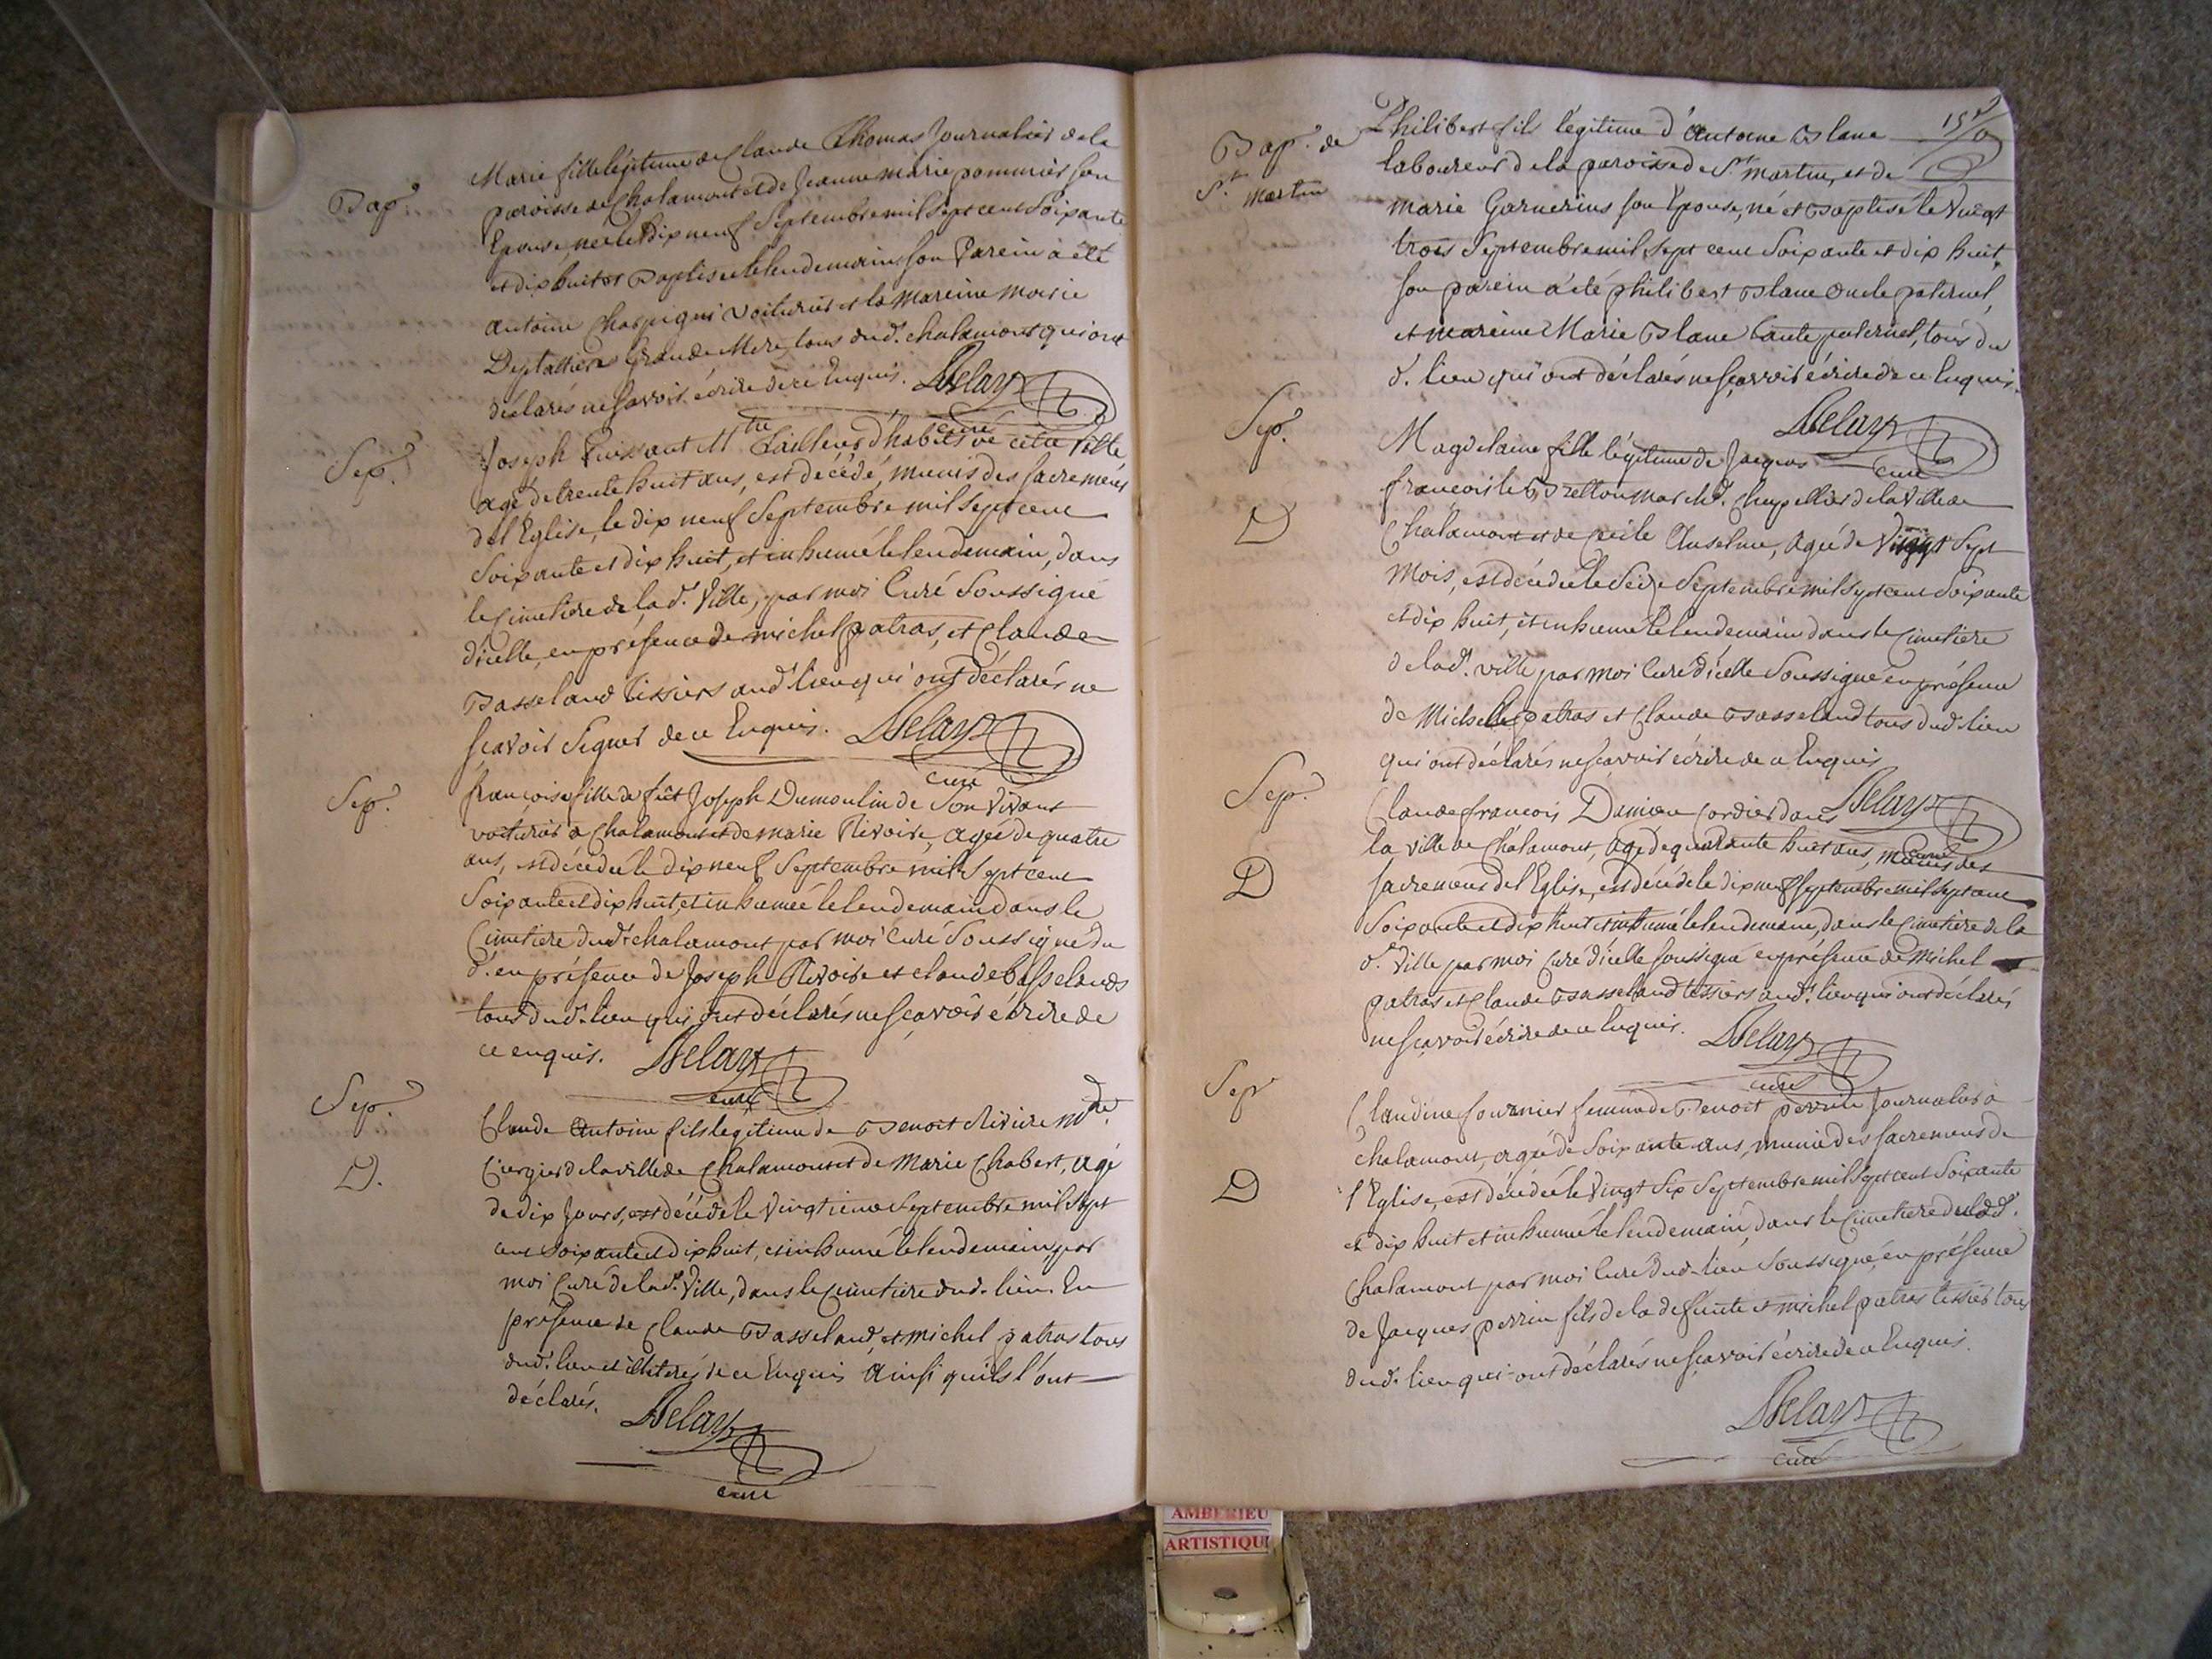 Bap.
Marie fille légitime de Claude Thomas Journalier de la
paroisse de Chalamont et de Jeanne marie pommier son
Epouse, née le dix neuf Septembre mil Sept cent Soixante
et dix huit et Baptisée le lendemain, son Parein a été
antoine Charpigni Voiturier et la Mareine marie
grande Mere, tous dud. chalamont qui ont
déclarés ne Savoir écrire de ce Enquis. Delay
curé
Sep.
Joseph Puissant Mtre tailleur d'habits de cette Ville
agé de trente huit ans, est décédé, munis des sacremens
de l'Eglise, le dix neuf Septembre mil Sept cent
Soixante et dix huit, et inhumé le lendemain, dans
le Cimetiere de lad. Ville, par moi Curé Soussigné
d'icelle, en présence de michel patras, et Claude
Basseland tissiers aud. lieu qui ont déclarés ne
scavoir Signer de ce Enquis. Delay
curé
Sep.
françoise fille de füt Joseph Dumoulin de Son Vivant
voiturier a Chalamont et de marie Rivoire, agée de quatre
ans, est décédée le dix neuf Septembre mil Sept cent
Soixante et dix huit, et inhumée le lendemain dans le
Cimetiere dud. chalamont par moi Curé Soussigné du
d. en présence de Joseph Rivoire et claude basselands
tous dud. lieu qui ont déclarés ne scavoir écrire de
ce enquis. Delay
curé
Sep.
Claude Antoine fils legitime de Benoit Riviere md.
D.
Ciergier de la ville de Chalamont et de Marie Chabert, agé
de dix Jours, est décédé le Vingtieme Septembre mil Sept
cent Soixante et dix huit, et inhumé le lendemain par
moi Curé de lad. Ville, dans le Cimetiere dud. lieu. En
présence de Claude Basseland, et michel patras tous
dud. lieu et illiterés de ce Enquis Ainsi qu'ils l'ont
déclarés. Delay
curé
Bap. de
St. martin
Philibert fils légitime d'Antoine Blanc
laboureur de la paroisse de St. martin, et de
marie Garnerius son Epouse, né et Baptisé le Vingt
trois Septembre mil Sept cent Soixante et dix huit,
son parein a été philibert Blanc Oncle paternel,
et mareine Marie Blanc tante paternel, tous du
d. lieu qui ont déclarés ne sçavoir écrire de ce Enquis.
Delay
curé
Sep.
Magdelaine fille légitime de Jacques
françois le Bretton march. Chapellier de la Ville de
D
Chalamont et de Cecile Anselme, agée de Vingt Sept
Mois, est décédée le Seize Septembre mil Sept cent Soixante
et dix huit, et inhumée le lendemain dans le Cimetiere
de lad. ville par moi Curé d'icelle Soussigné en présence
de Michel patras et Claude Basseland tous dud. lieu
qui ont déclarés ne sçavoir écrire de ce Enquis
Delay
curé
Sep.
Claude françois Damien Cordier dans
la ville de Chalamont, agé de quarante huit ans, munis des
D
sacremens de l'Eglise, est décédé le dix neuf Septembre mil Sept cent
Soixante et dix huit et inhumé le lendemain, dans le Cimetiere de la
d. Ville par moi Curé d'icelle soussigné en présence de Michel
patras et Claude Basseland tissiers aud. lieu qui ont déclarés
ne sçavoir écrire de ce Enquis. Delay
curé
Sep
Claudine fournier femme de Benoit perrin Journalier a
chalamont, agée de Soixante ans, munie des sacremens de
D
l'Eglise, est décédée le Vingt Six Septembre mil Sept cent Soixante
et dix huit et inhumée le lendemain, dans le Cimetiere dud.
Chalamont par moi Curé dud. lieu Soussigné, en présence
de Jacques perrin fils de la defunte et michel patras tissier tous
dud. lieu qui ont déclarés ne sçavoir écrire de ce Enquis.
Delay
curé
AMBERIEU
ARTISTIQU